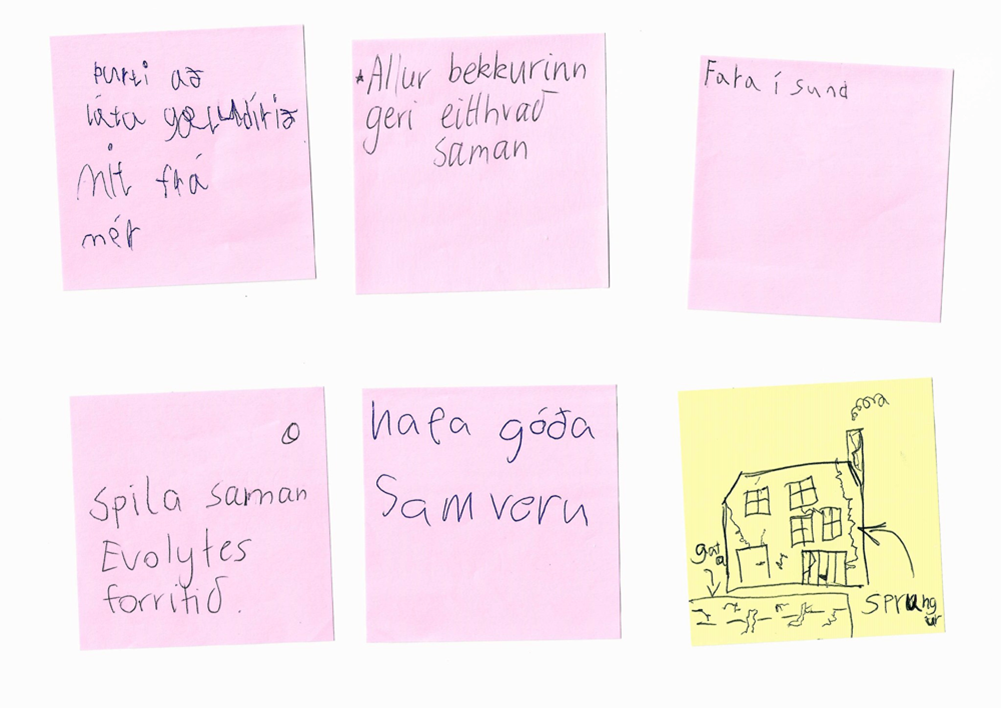 þurfti að
láta gæludýrið
mitt frá
mér
*Allur bekkurinn
geri eitthvað
saman
Fara í sund
Spila saman
Evolytes
forritið.
hafa góða
Samveru
gata
Sprung
ur